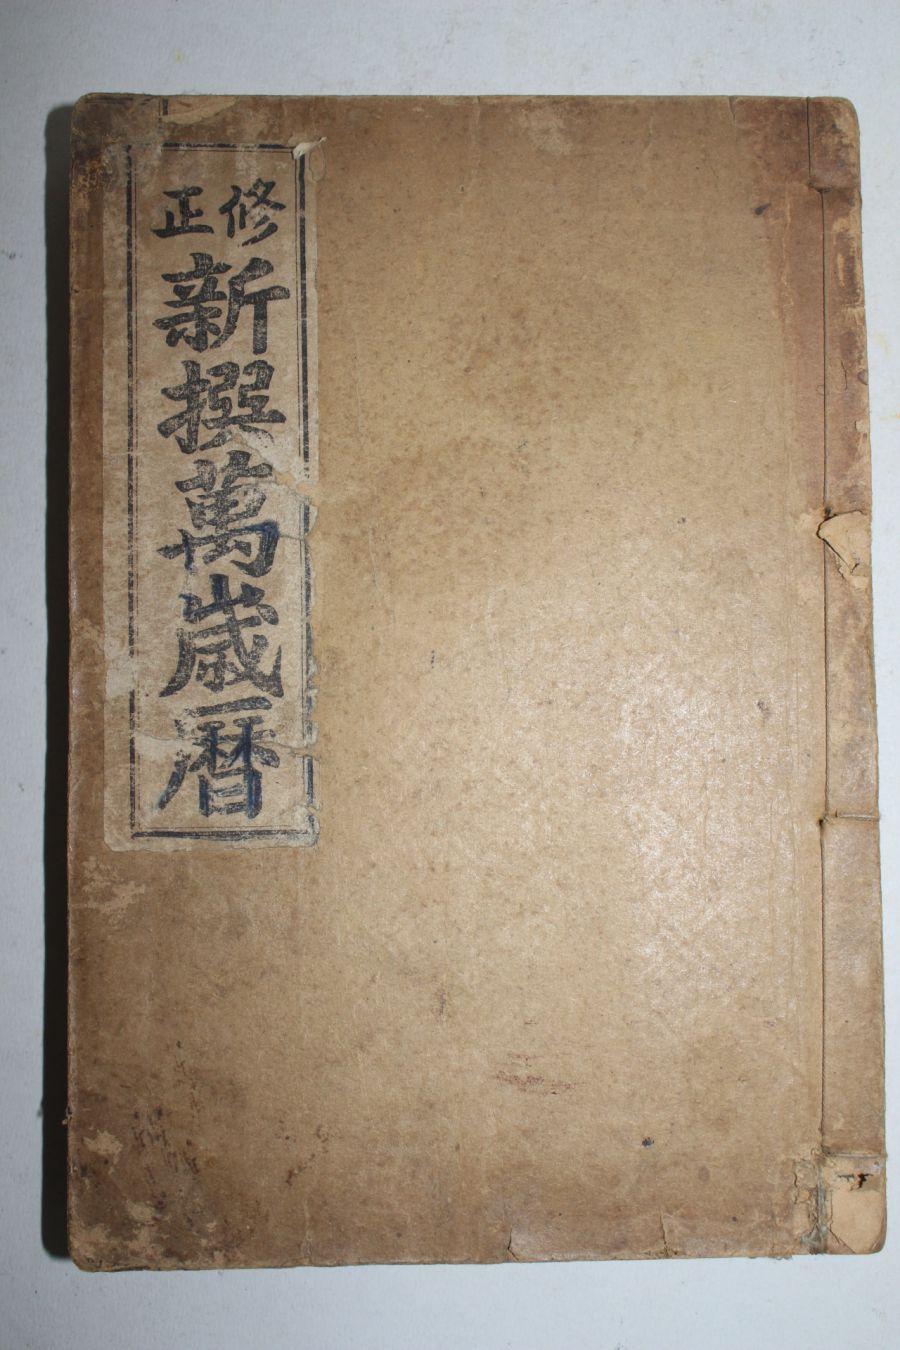 修正
新撰萬歲曆